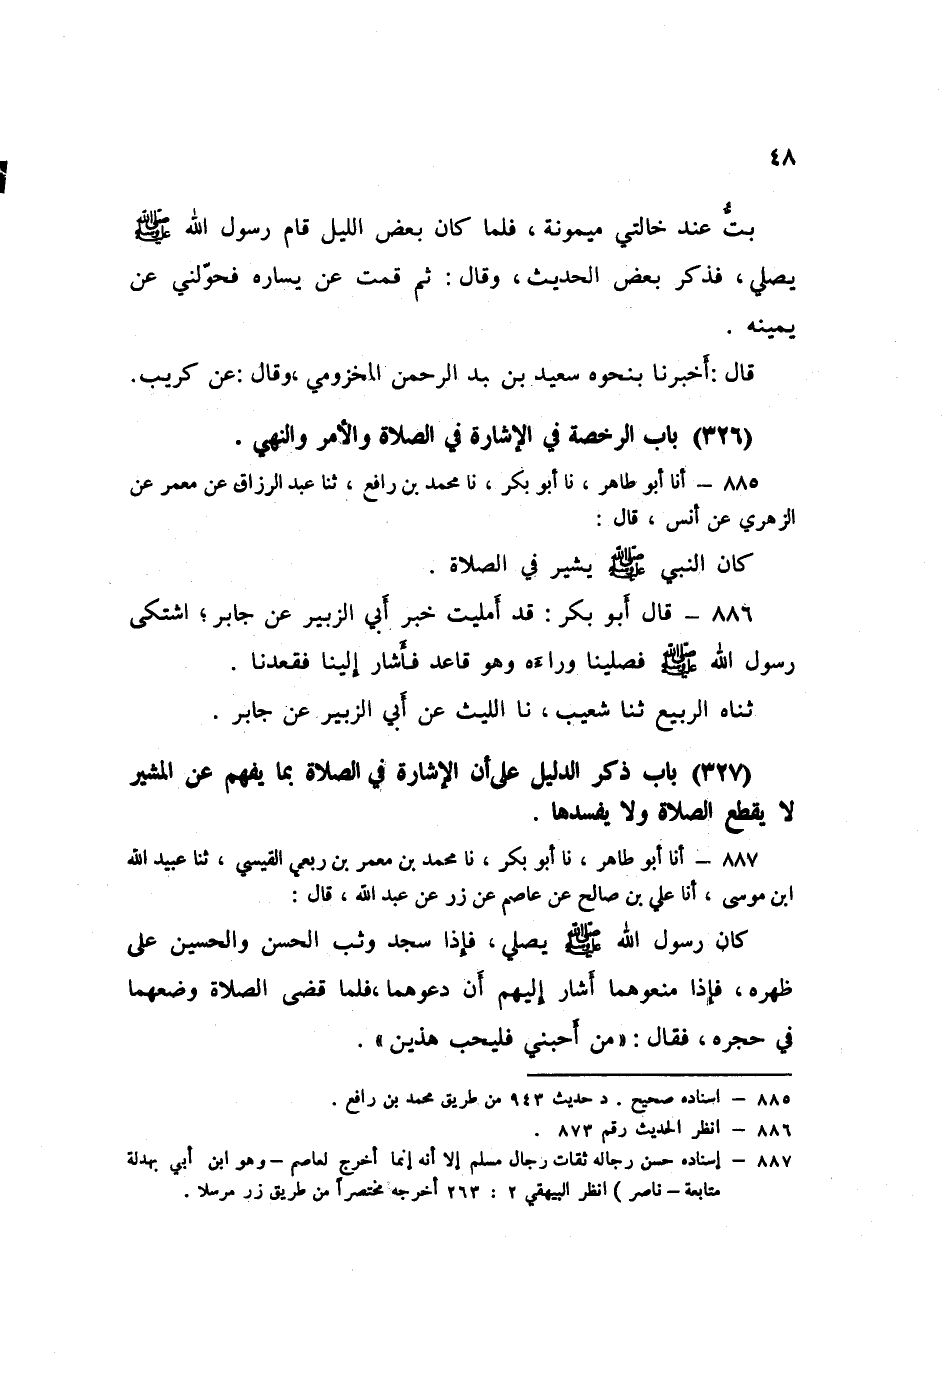 ٤٨
بتُّ عند خالتي ميمونة ، فلما كان بعض الليل قام رسول الله ﷺ
يصلي ، فذكر بعض الحديث ، وقال : ثم قمت عن يساره فحوّلني عن
يمينه .
قال :أَخبرنا بنحوه سعيد بن بد الرحمن المخزومي ،وقال :عن كريب.
(٣٢٦) باب الرخصة في الإشارة في الصلاة والأمر والنهي .
٨٨٥ – أنا أبو طاهر ، نا أبو بكر ، نا محمد بن رافع ، ثنا عبد الرزاق عن معمر عن
الزهري عن أنس ، قال :
كان النبي ﷺ يشير في الصلاة .
٨٨٦ – قال أَبو بكر : قد أَمليت خبر أَبي الزبير عن جابر ؛ اشتكى
رسول الله ﷺ فصلينا وراءه وهو قاعد فأَشار إلينا فقعدنا .
ثناه الربيع ثنا شعيب ، نا الليث عن أَبي الزبير عن جابر .
(٣٢٧) باب ذكر الدليل على أن الإشارة في الصلاة بما يفهم عن المشير
لا يقطع الصلاة ولا يفسدها .
٨٨٧ – أنا أبو طاهر ، نا أبو بكر ، نا محمد بن معمر بن ربعي القيسي ، ثنا عبيد الله
ابن موسى ، أنا علي بن صالح عن عاصم عن زر عن عبد الله ، قال :
كان رسول الله ﷺ يصلي ، فإذا سجد وثب الحسن والحسين على
ظهره ، فإذا منعوهما أَشار إليهم أَن دعوهما ،فلما قضى الصلاة وضعهما
في حجره ، فقال : «من أَحبني فليحب هذين» .
٨٨٥ – اسناده صحيح . د حديث ٩٤٣ من طريق محمد بن رافع .
٨٨٦ – انظر الحديث رقم ٨٧٣ .
٨٨٧ – إسناده حسن رجاله ثقات رجال مسلم إلا أنه إنما أخرج لعاصم – وهو ابن أبي بهدلة
متابعة – ناصر ) انظر البيهقي ٢ : ٢٦٣ أخرجه مختصراً من طريق زر مرسلا .